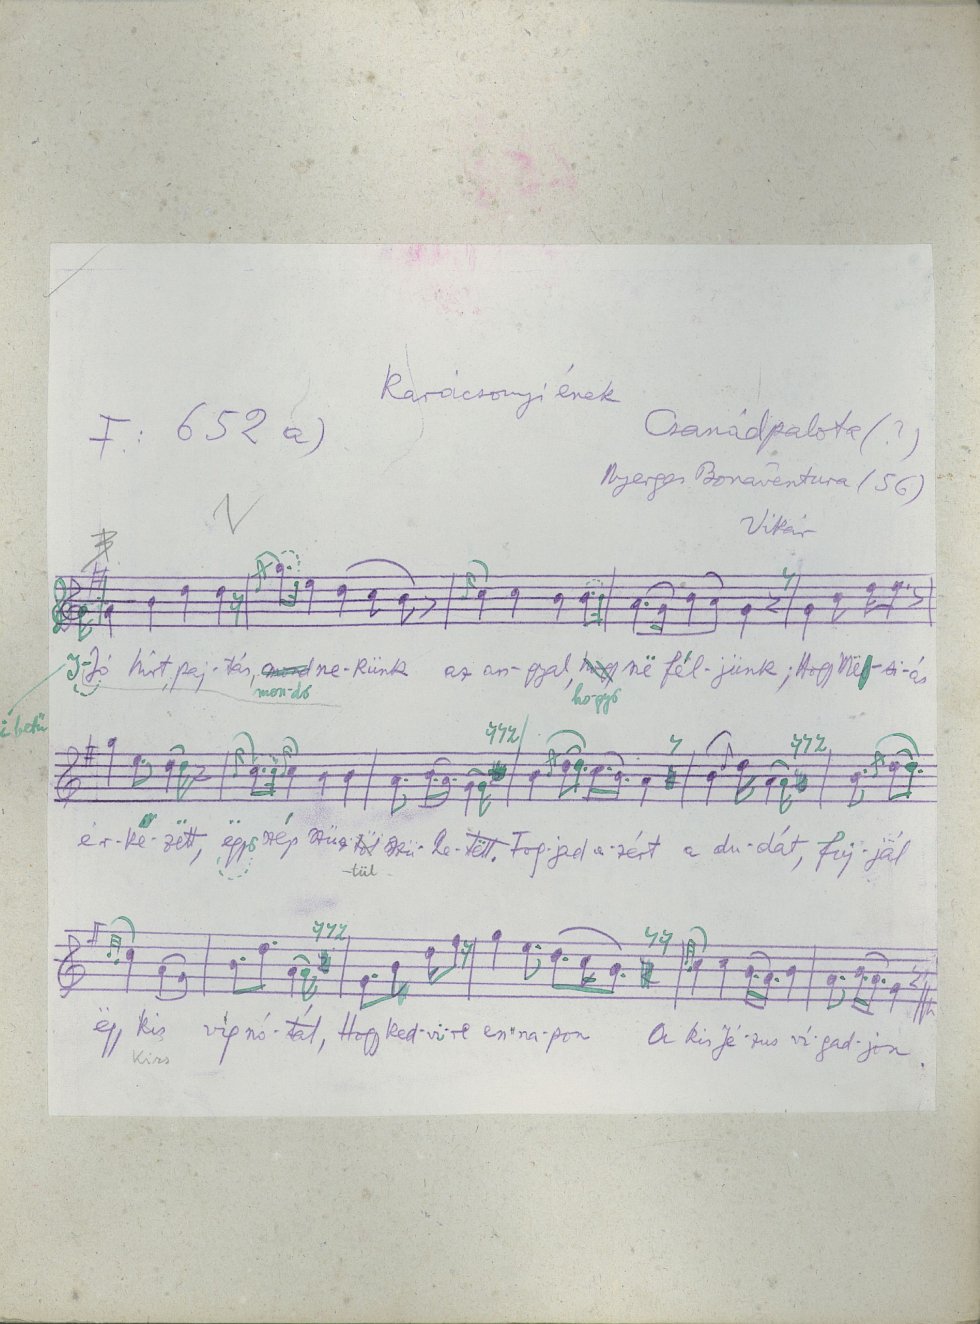 Karácsonyi ének
F: 652 a)
Csanádpalota (?)
Nyerges Bonaventura (56)
Vikár
I-Jó hírt, paj-tás, mond ne-künk az an-gyal, hogy në fél-jünk; Hogy Mës-si-ás
mon-dó hogyó
i betű
é-r-ke-zëtt, ëgy szép szűz-től szü-le-tëtt. Fog-jad a-zért a du-dát, fuj-jál
-tül
ëgy kis víg nó-tát, Hogy ked-vi-re en-na-pon A kis Jé-zus ví-gad-jon.
Kiss